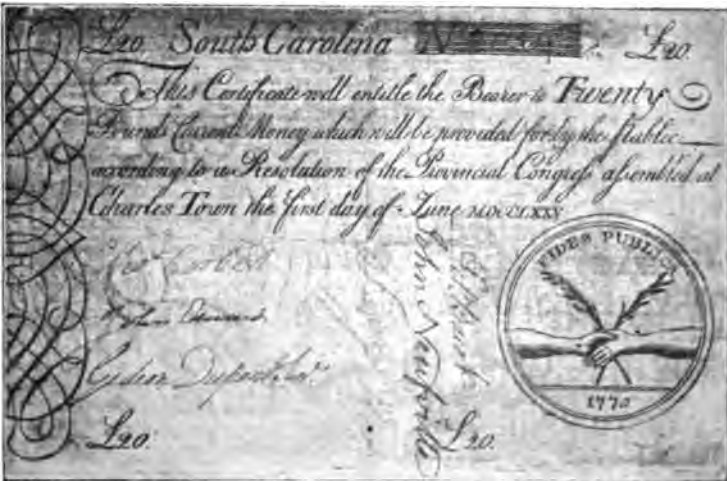 £20. South Carolina N £20.
This Certificate will entitle the Bearer to Twenty
Pounds Current Money which will be provided for by the Publec
according to a Resolution of the Provincial Congress assembled at
Charles Town the first day of June MDCCLXXV
FIDES PUBLICA
John Neufville
Gideon Dupont Junr.
1775
£20. £20.